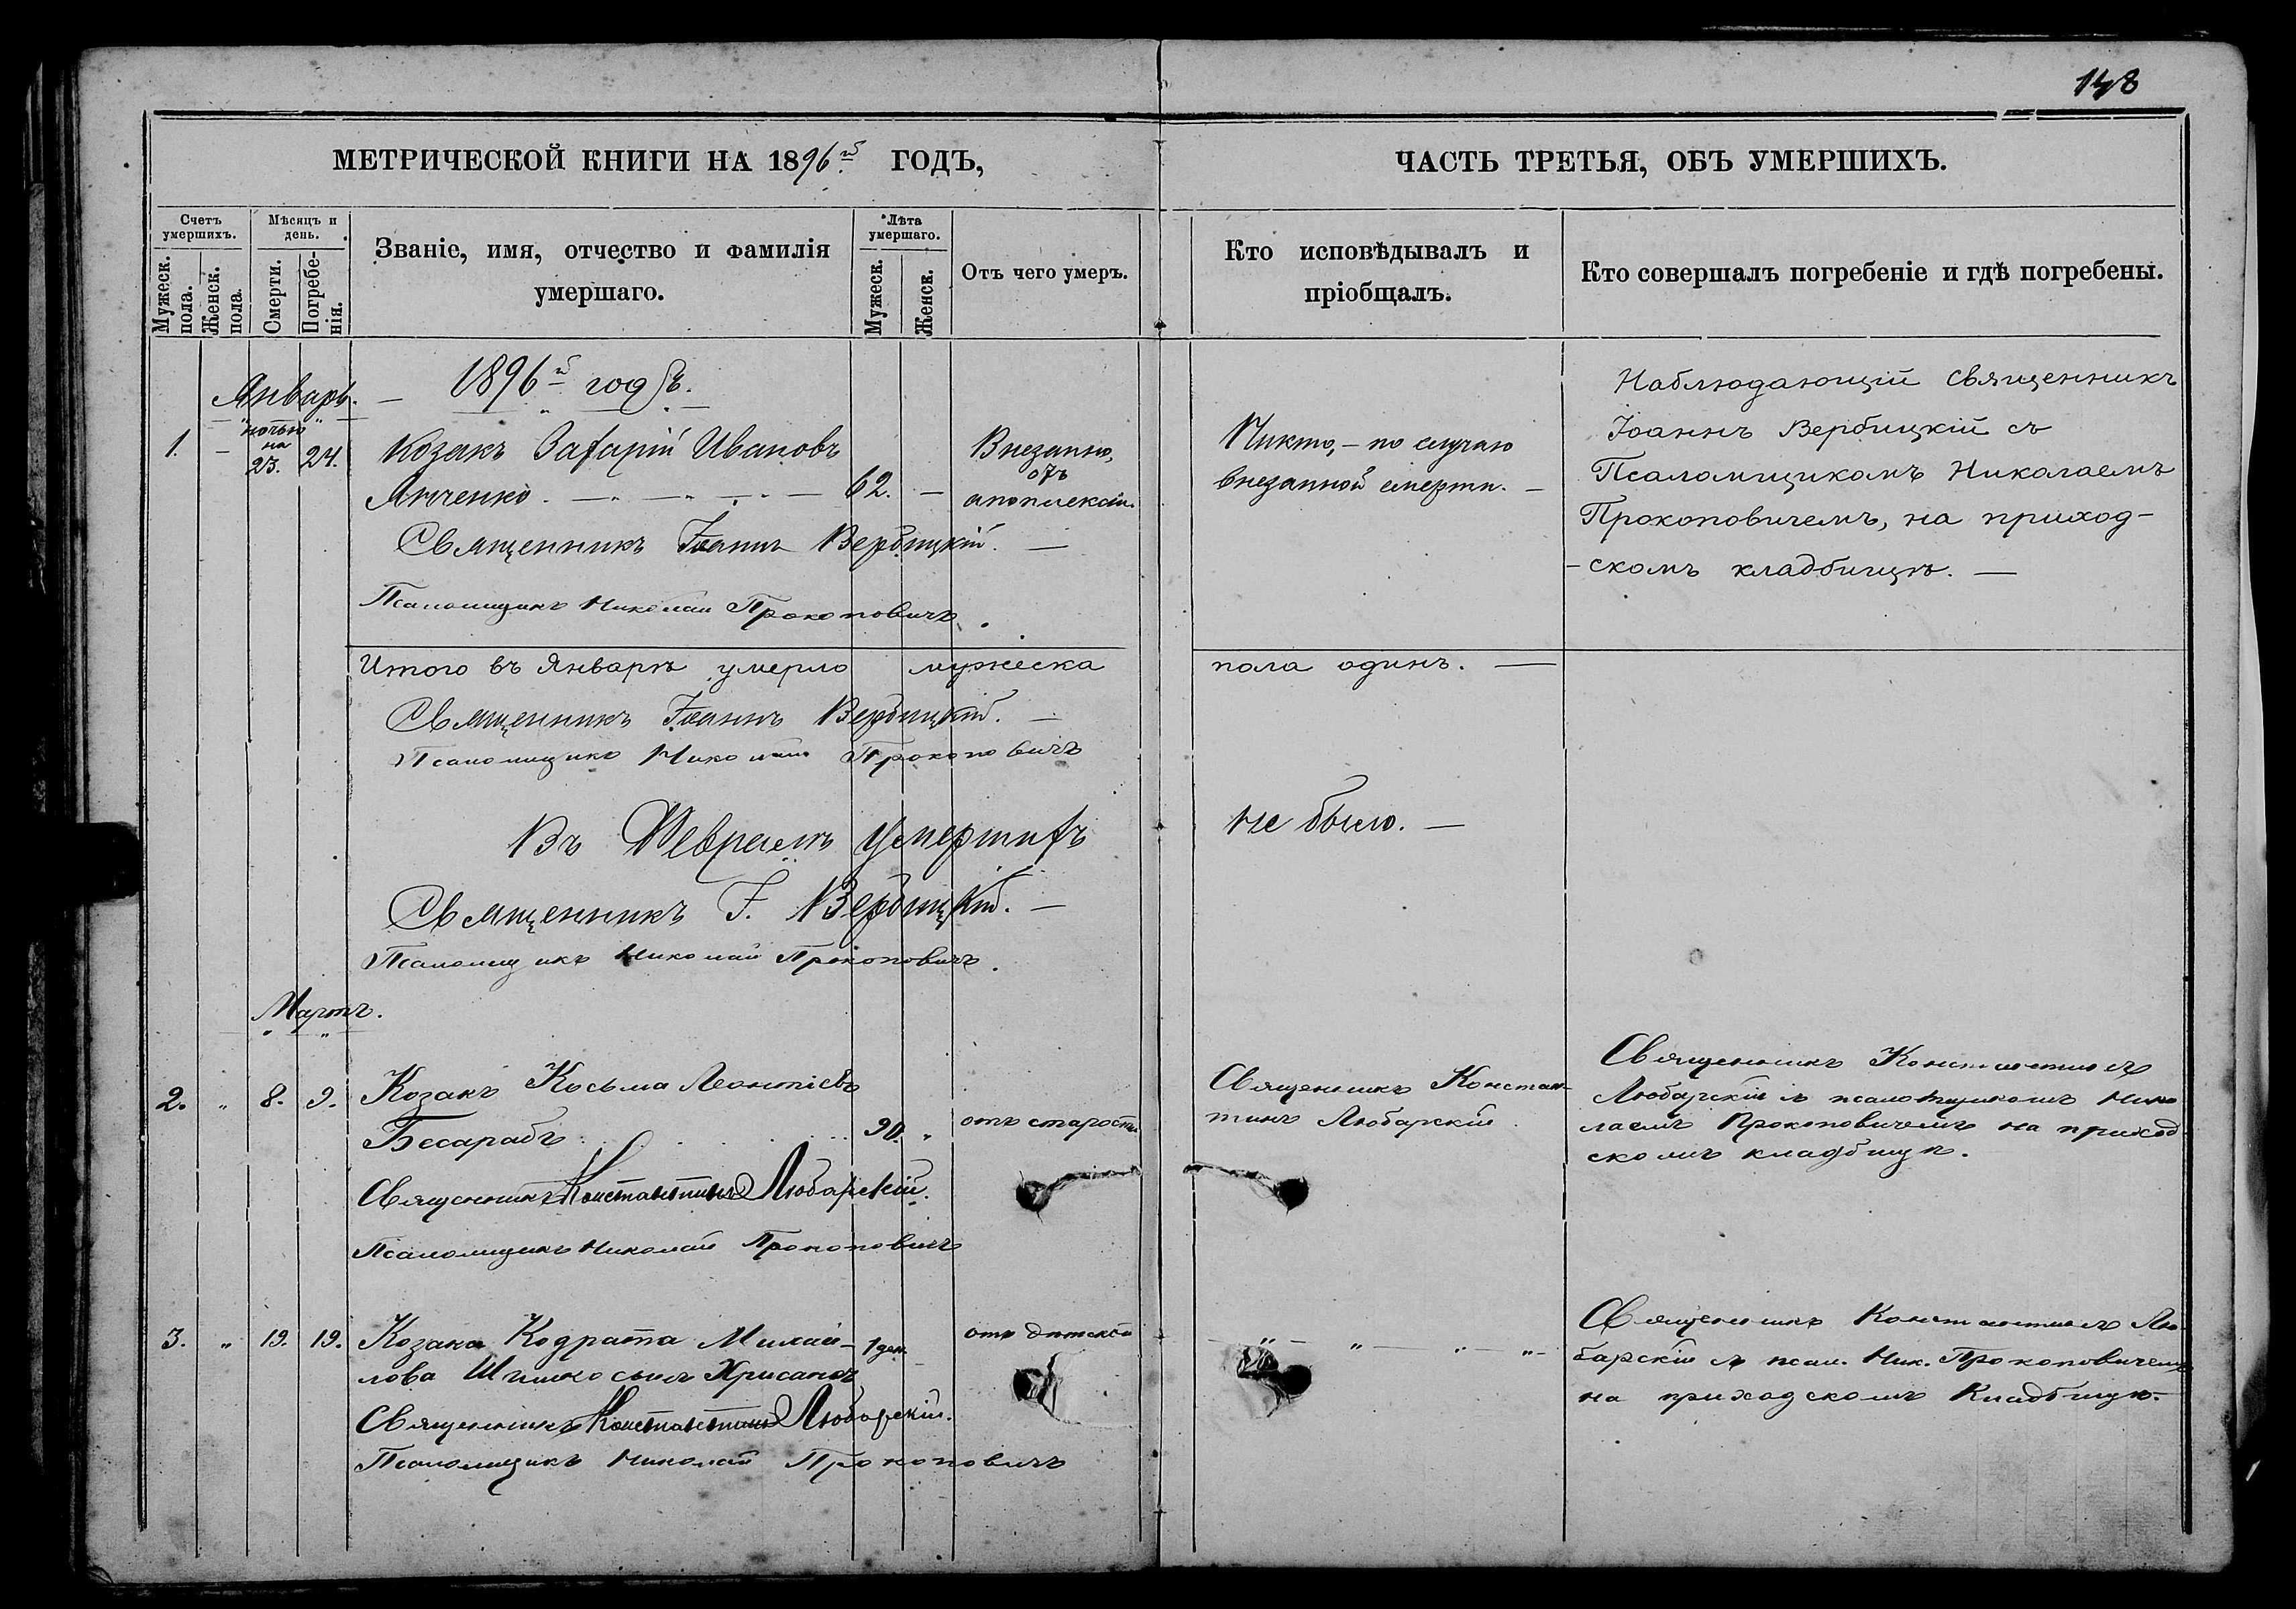 148
МЕТРИЧЕСКОЙ КНИГИ НА 1896й ГОДЪ,
ЧАСТЬ ТРЕТЬЯ, ОБЪ УМЕРШИХЪ.
Счетъ умершихъ.
Мужеск. пола.
Женск. пола.
Мѣсяцъ и день.
Смерти.
Погребенія.
Званіе, имя, отчество и фамилія
умершаго.
Лѣта умершаго.
Мужеск.
Женск.
Отъ чего умеръ.
Кто исповѣдывалъ и
пріобщалъ.
Кто совершалъ погребеніе и гдѣ погребены.
Январь. — 1896й годъ.
1. — ночью на 23. 24.
Козакъ Захарій Ивановъ
62. —
Внезапно,
отъ
апоплексіи.
Никто, — по случаю
внезапной смерти. —
Наблюдающій Священникъ
Іоаннъ Вербицкій съ
Псаломщикомъ Николаемъ
Прокоповичемъ, на приход-
-скомъ кладбищѣ. —
Священникъ Іоаннъ Вербицкій. —
Псаломщикъ Николай Прокоповичъ.
Итого въ Январѣ умерло мужеска пола одинъ. —
Священникъ Іоаннъ Вербицкій. —
Псаломщикъ Николай Прокоповичъ
Въ Февралѣ умершихъ не было. —
Священникъ І. Вербицкій. —
Псаломщикъ Николай Прокоповичъ.
Мартъ.
2. " 8. 9.
Козакъ Косьма Леонтіевъ
Бесарабъ 90. "
отъ старости
Священникъ Констан-
тинъ Любарскій
Священникъ Константинъ
Любарскій съ псаломщикомъ Нико
лаемъ Прокоповичемъ на приход
скомъ кладбищѣ.
Священникъ Константинъ Любарскій.
Псаломщикъ Николай Прокоповичъ
3. " 19. 19.
Козака Кодрата Михай-
лова Шишко сынъ Хрисанѳъ
1 ден.
отъ дѣтской
" — " — " — " —
Священникъ Константинъ Лю
барскій съ псал. Ник. Прокоповичемъ
на приходскомъ Кладбищѣ.
Священникъ Константинъ Любарскій.
Псаломщикъ Николай Прокоповичъ